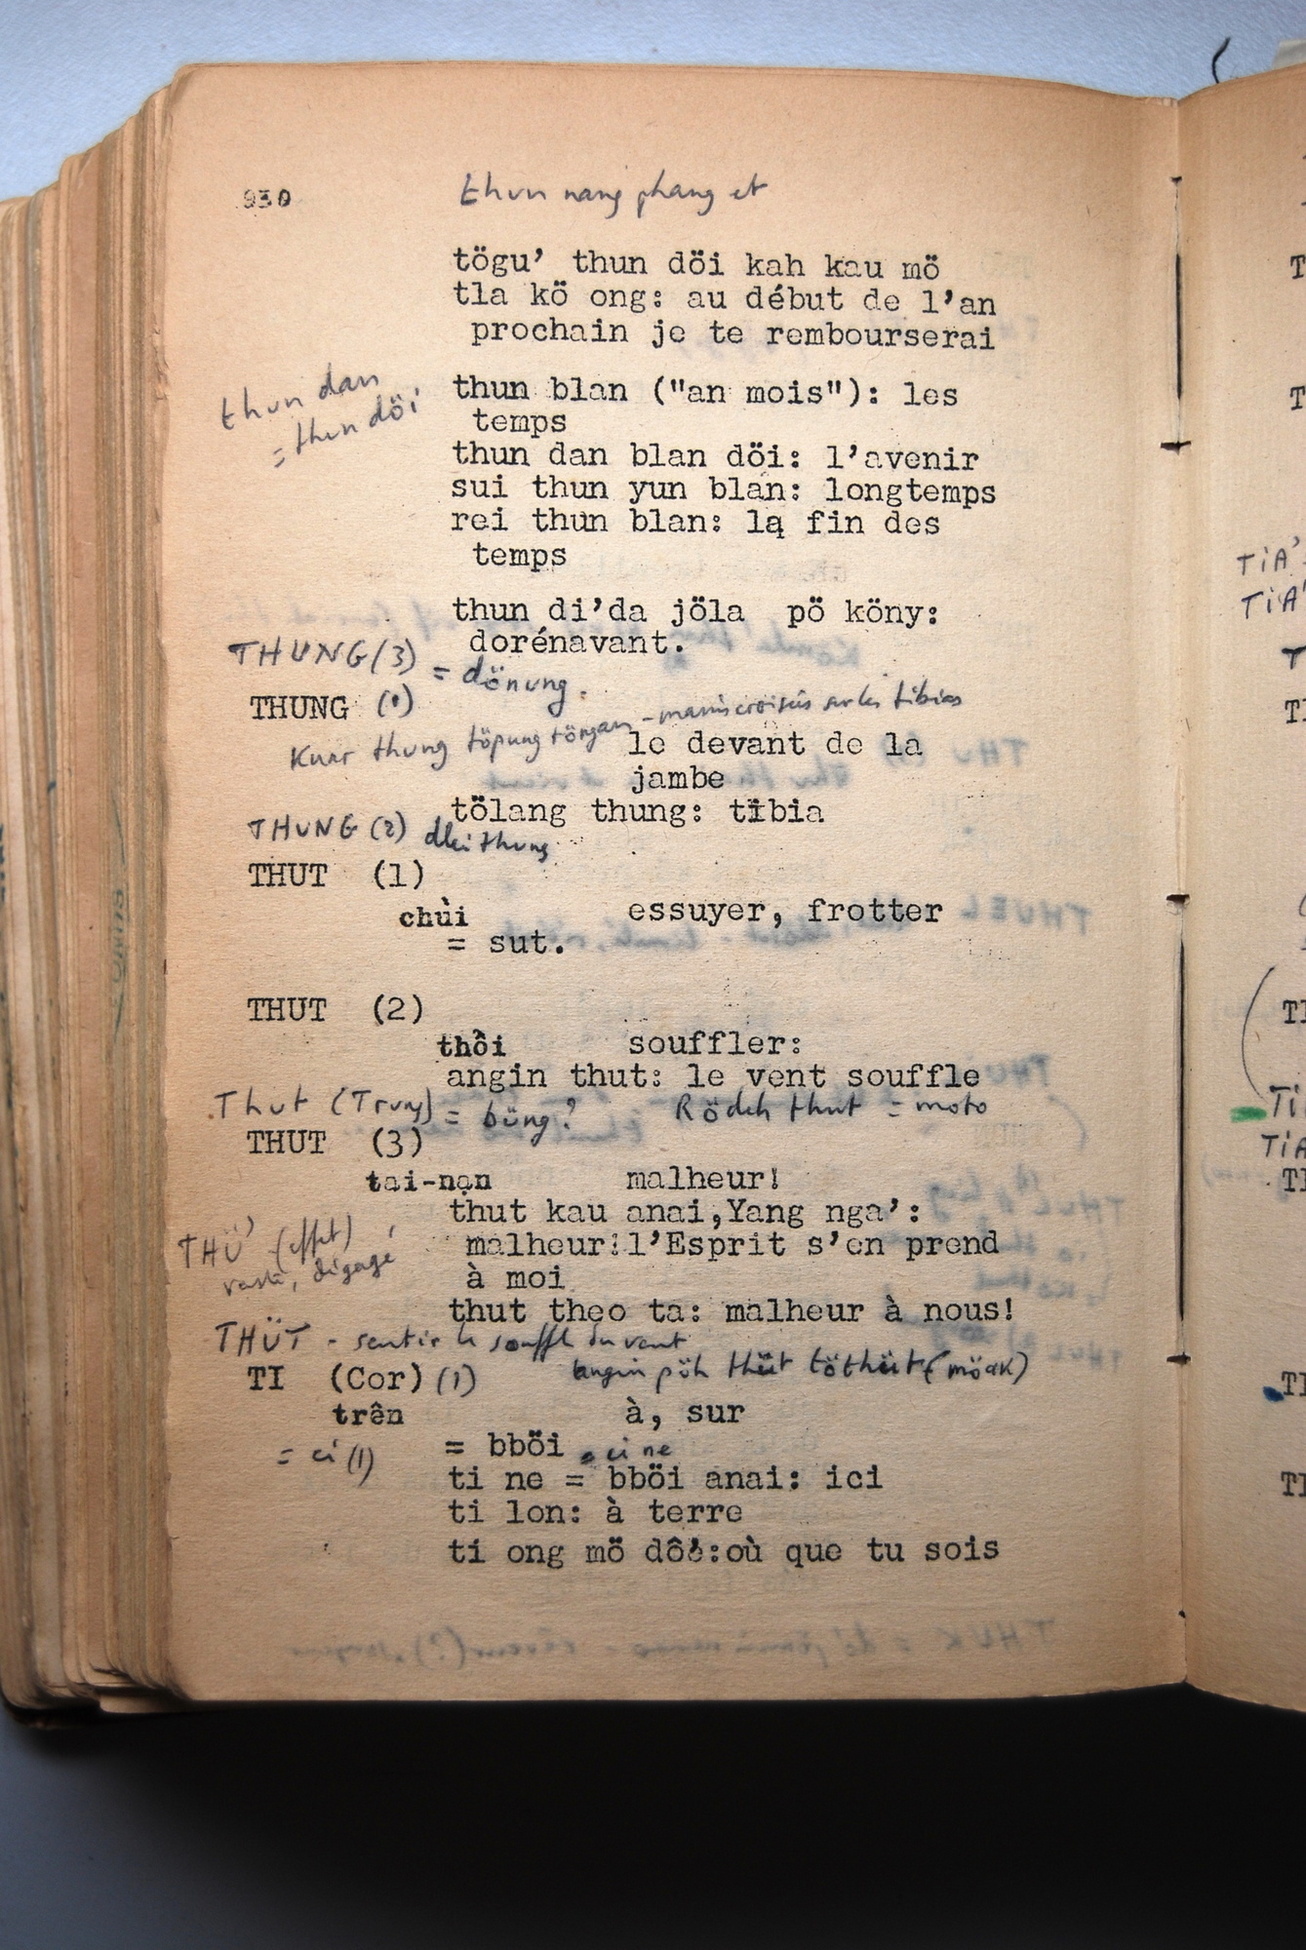 930
thun nang phang et
tögu' thun döi kah kau mö
tla kö ong: au début de l'an
prochain je te rembourserai
thun dan
= thun döi
thun blan ("an mois"): les
temps
thun dan blan döi: l'avenir
sui thun yun blan: longtemps
rei thun blan: la fin des
temps
thun di'da jöla pö köny:
dorénavant.
THUNG (3) = dönung.
THUNG (1)
Kuar thung töpung töngan - mains croisées sur les tibias
le devant de la
jambe
tölang thung: tibia
THUNG (2) dlei thung
THUT (1)
chùi essuyer, frotter
= sut.
THUT (2)
thồi souffler:
angin thut: le vent souffle
Thut (Trung) = büng? Rödeh thut = moto
THUT (3)
tai-nạn malheur!
thut kau anai,Yang nga':
malheur!l'Esprit s'en prend
à moi
thut theo ta: malheur à nous!
THÜ' (effet)
vaste, dégagé
THÜT - sentir le souffle du vent
angin pöh thüt töthüt (möak)
TI (Cor) (1)
trên à, sur
= ci (1)
= bböi
ci ne
ti ne = bböi anai: ici
ti lon: à terre
ti ong mö dôê:où que tu sois
TIA'